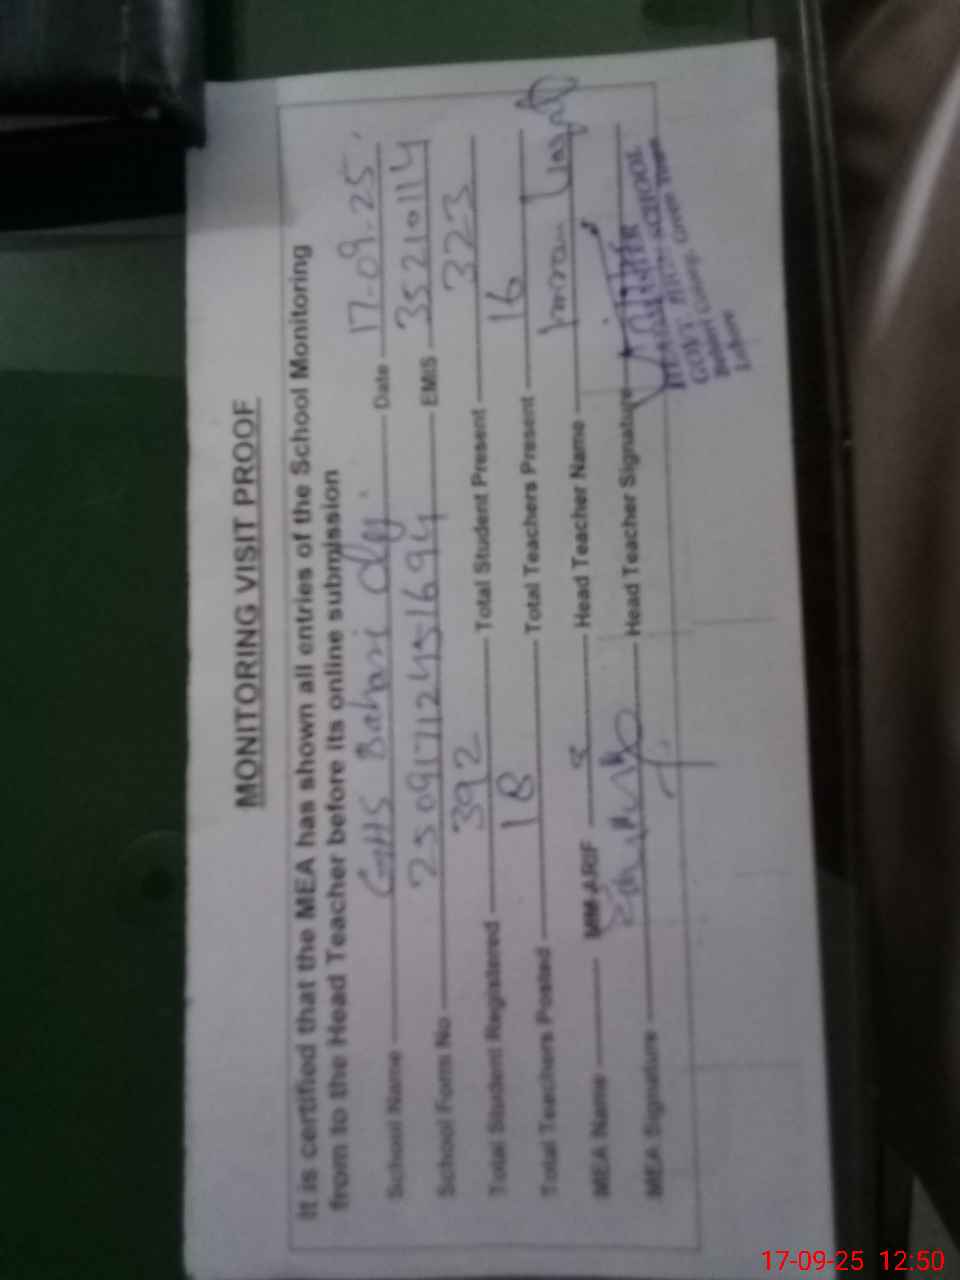 MONITORING VISIT PROOF
It is certified that the MEA has shown all entries of the School Monitoring
from to the Head Teacher before its online submission
School Name GHS Bahari Date 17-09-25
School Form No EMIS 35210114
Total Student Registered 392 Total Student Present 323
Total Teachers Posted 18 Total Teachers Present 16
MEA Name MM ARIF Head Teacher Name Imran
MEA Signature Head Teacher Signature
HIGH SCHOOL
GOVT
Lahore
17-09-25 12:50